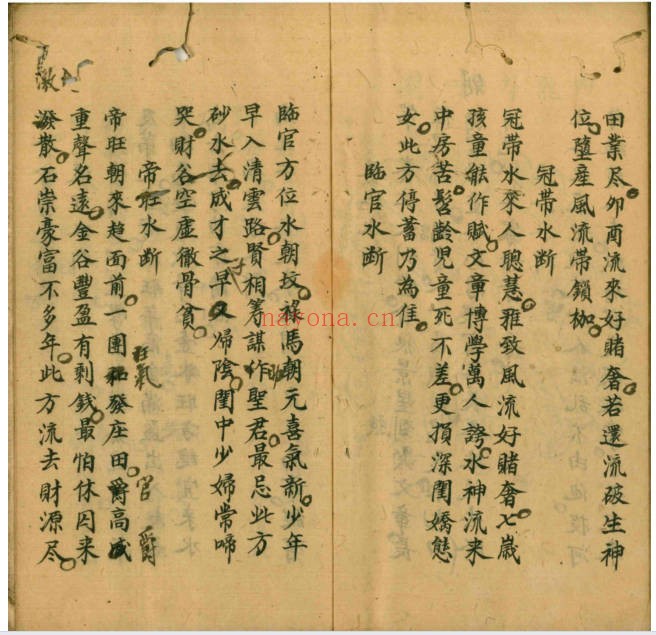 田業尽卯酉流來好賭奢若還流破生神
位墮産風流帯鎖枷
冠帯水断
冠帯水來人聰慧雅致風流好賭奢七歲
孩童能作賦文章博學萬人誇水神流来
中房苦髫齡児童死不差更損深閨嬌態
女此方停蓄乃為佳
臨官水断
臨官方位水朝坟祿馬朝元喜氣新少年
早入清雲路賢相筹謀作聖君最忌此方
砂水去成才之早又帰陰閨中少婦常啼
哭財谷空虚徹骨貧
帝旺水断
帝旺朝來趋面前一團和發庄田爵高威
旺氣
官爵
重聲名遠金谷豐盈有剩銭最怕休囚来
潑散石崇豪富不多年此方流去財源尽
激
nayona.cn